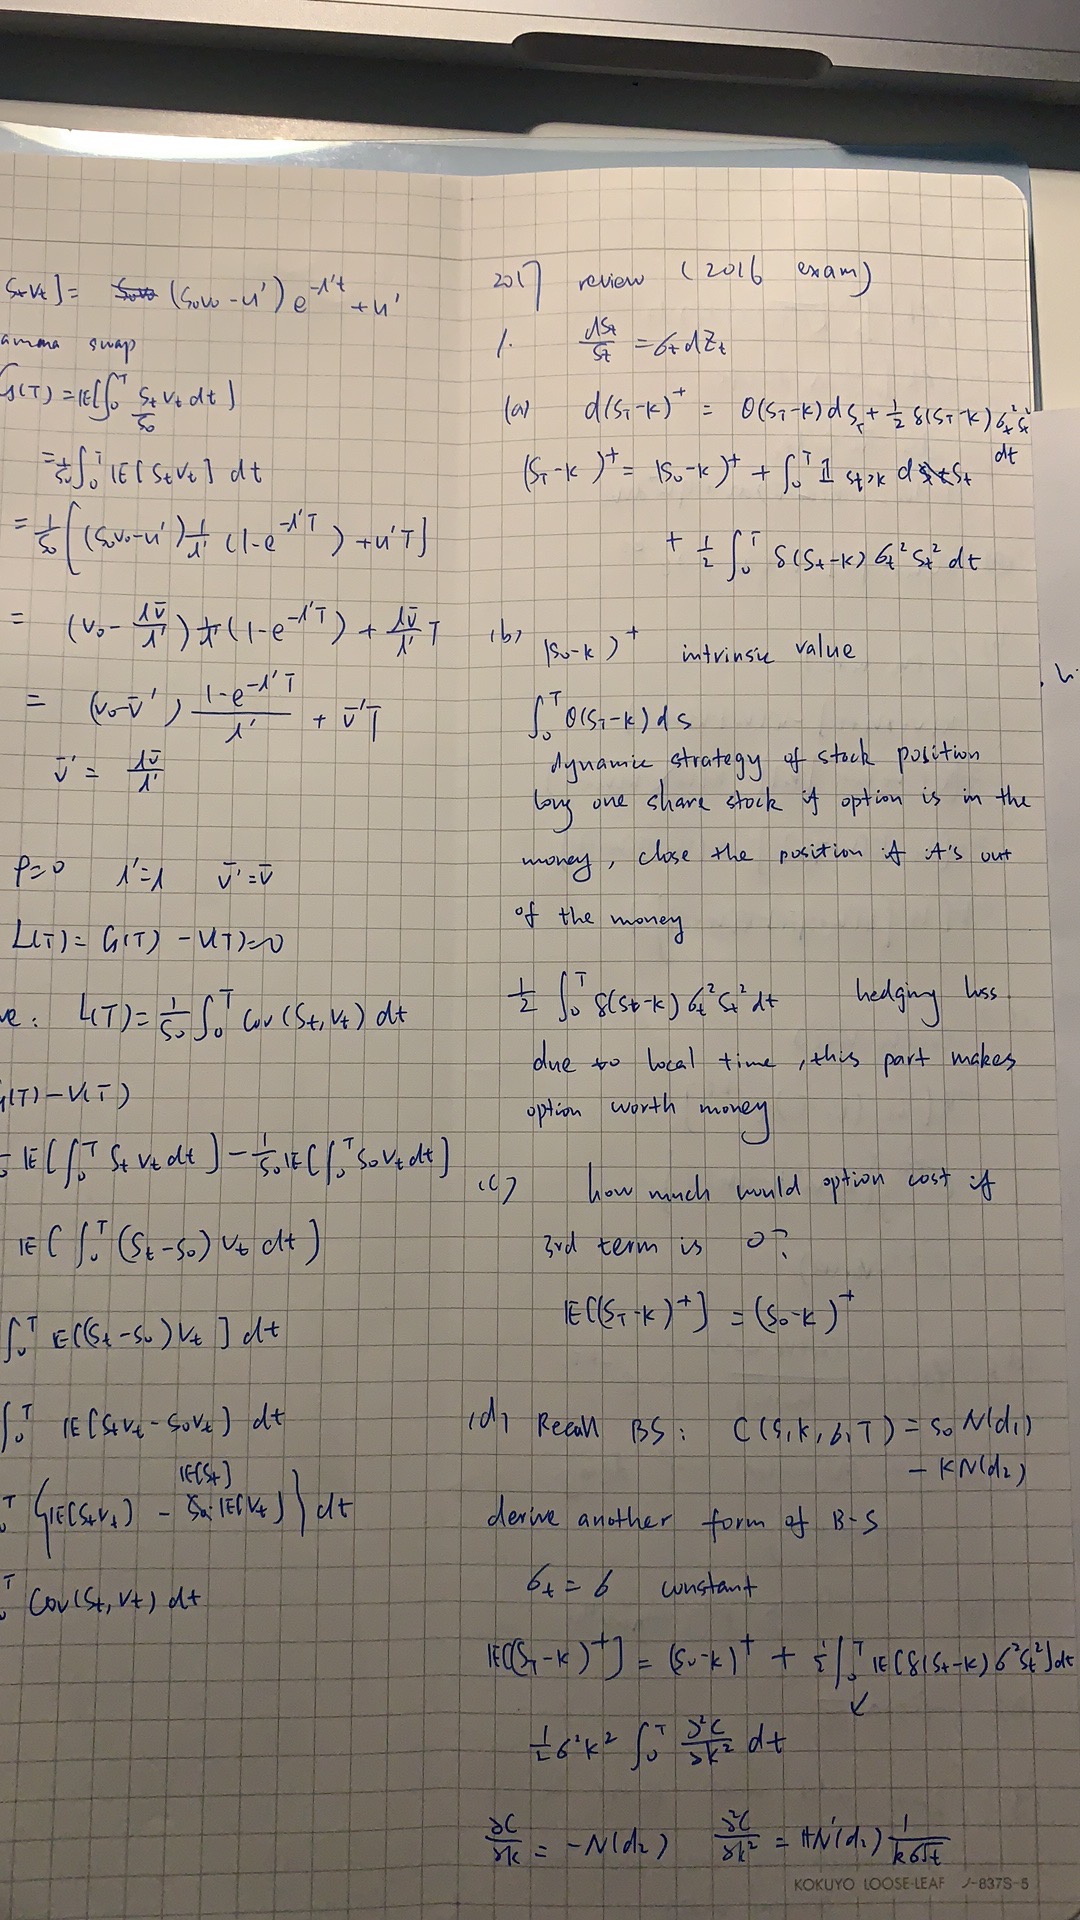 S_t v_t] = (S_0 v_0 - u') e^{-λ't} + u'
amma swap
G(T) = IE[∫_0^T S_t/S_0 v_t dt]
= 1/S_0 ∫_0^T IE[S_t v_t] dt
= 1/S_0 [(S_0 v_0 - u') 1/λ' (1-e^{-λ'T}) + u'T]
= (v_0 - λv̄/λ') 1/λ' (1-e^{-λ'T}) + λv̄/λ' T
= (v_0 - v̄') (1-e^{-λ'T})/λ' + v̄'T
v̄' = λv̄/λ'
ρ=0 λ'=λ v̄'=v̄
L(T) = G(T) - V(T) = 0
ve: L(T) = 1/S_0 ∫_0^T Cov(S_t, v_t) dt
G(T) - V(T)
IE[∫_0^T S_t v_t dt] - 1/S_0 IE[∫_0^T S_0 v_t dt]
IE[∫_0^T (S_t - S_0) v_t dt]
∫_0^T IE[(S_t - S_0) v_t] dt
∫_0^T IE[S_t v_t - S_0 v_t] dt
IE[S_t]
T {IE[S_t v_t] - S_0 · IE[v_t]} dt
T Cov(S_t, v_t) dt
2017 review (2016 exam)
1. dS_t/S_t = σ_t dZ_t
(a) d(S_T-K)^+ = θ(S_T-K) dS_T + 1/2 δ(S_T-K) σ_t^2 S_t^2 dt
(S_T-K)^+ = (S_0-K)^+ + ∫_0^T 𝟙_{S_t>K} dS_t
+ 1/2 ∫_0^T δ(S_t-K) σ_t^2 S_t^2 dt
(b) (S_0-K)^+ intrinsic value
∫_0^T θ(S_T-K) ds
dynamic strategy of stock position
long one share stock if option is in the
money, close the position if it's out
of the money
1/2 ∫_0^T δ(S_t-K) σ_t^2 S_t^2 dt hedging loss
due to local time, this part makes
option worth money
(c) how much would option cost if
3rd term is 0?
IE[(S_T-K)^+] = (S_0-K)^+
(d) Recall BS: C(S,K,σ,T) = S_0 N(d_1)
- K N(d_2)
derive another form of B-S
σ_t = σ constant
IE[(S_T-K)^+] = (S_0-K)^+ + 1/2 ∫_0^T IE[δ(S_t-K) σ^2 S_t^2] dt
1/2 σ^2 K^2 ∫_0^T ∂²C/∂K² dt
∂C/∂K = -N(d_2) ∂²C/∂K² = +N'(d_2) 1/(Kσ√t)
KOKUYO LOOSE-LEAF ノ-837S-5